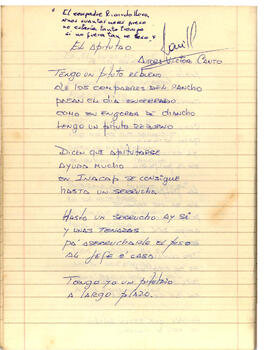 "El compadre Ricardo
unos cuantos meses preso
no estaría tanto tiempo
si no fuera tan no seco."
EL APITUTAO
AUTOR: VICTOR CANTO
TENGO UN PITUTO REBUENO
DE LOS COMPADRES DEL RANCHO
PASAN EL DÍA ENCERRADO
COMO EN ENGORDA DE CHANCHO
TENGO UN PITUTO REBUENO
DICEN QUE APITUTARSE
AYUDA MUCHO
EN INACAP SE CONSIGUE
HASTA UN SERRUCHO
HASTA UN SERRUCHO AY SÍ
Y UNAS TENAZAS
PA' ASERRUCHARLE EL PISO
AL JEFE E' CASA
TENGO YO UN PITUTITO
A LARGO PLAZO.